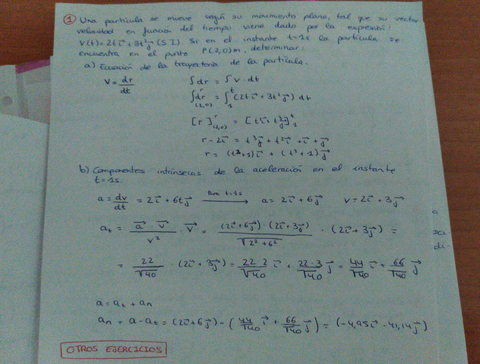 ① Una partícula se mueve según su movimiento plano, tal que su vector
velocidad en función del tiempo viene dado por la expresión:
V(t)=2ti⃗+3t²j⃗ (S.I). Si en el instante t=1s la partícula se
encuentra en el punto P(2,0)m, determinar:
a) Ecuación de la trayectoria de la partícula.
V = dr/dt   ∫dr = ∫v·dt
∫_(2,0)^r dr = ∫_1^t (2ti⃗+3t²j⃗) dt
[r]_(2,0)^r = [ti⃗+t³j⃗]_1^t
r-2i⃗ = t³j⃗+t²i⃗+i⃗+j⃗
r = (t²+1)i⃗ + (t³+1)j⃗
b) Componentes intrínsecas de la aceleración en el instante
t=1s.
a = dv/dt = 2i⃗+6tj⃗ → Para t=1s a = 2i⃗+6j⃗   v = 2i⃗+3j⃗
a_t = (a⃗ · v⃗)/v² · v⃗ = ((2i⃗+6j⃗)·(2i⃗+3j⃗))/√(2²+6²) · (2i⃗+3j⃗) =
= 22/√40 · (2i⃗+3j⃗) = 22·2/√40 i⃗ + 22·3/√40 j⃗ = 44/√40 i⃗ + 66/√40 j⃗
a = a_t + a_n
a_n = a-a_t = (2i⃗+6j⃗) - (44/√40 i⃗ + 66/√40 j⃗) = (-4,95i⃗ -4,14j⃗)
OTROS EJERCICIOS